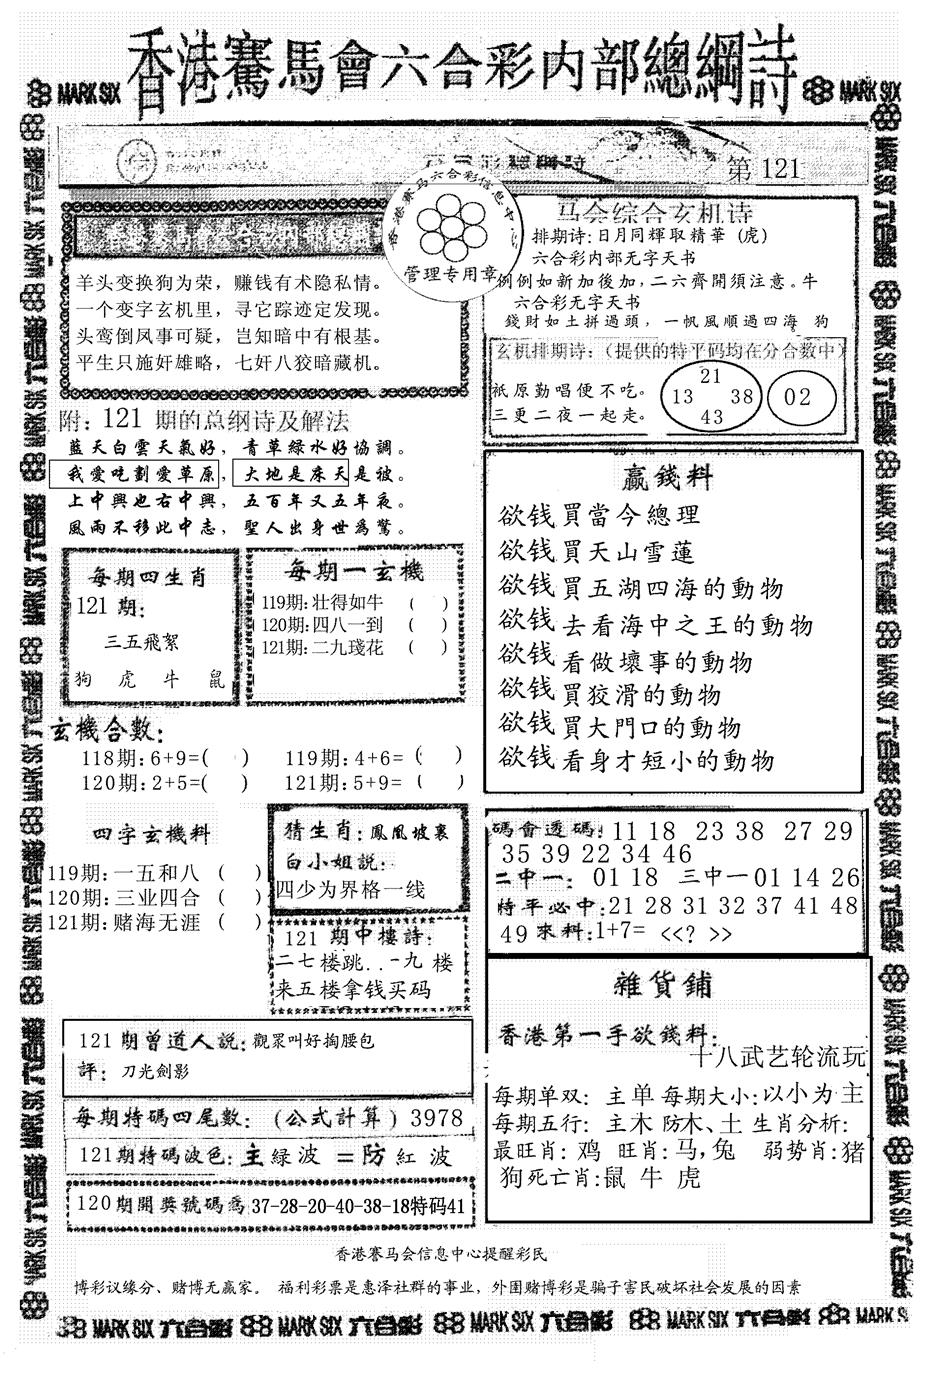 香港賽馬會六合彩内部總綱詩
MARK SIX
MARK SIX
第 121
香港赛马六合彩信息中
管理专用章
羊头变换狗为荣，赚钱有术隐私情。
一个变字玄机里，寻它踪迹定发现。
头鸾倒凤事可疑，岂知暗中有根基。
平生只施奸雄略，七奸八狡暗藏机。
马会综合玄机诗
排期诗:日月同輝取精華 (虎)
六合彩内部无字天书
例例如新加後加,二六齊開須注意。牛
六合彩无字天书
錢財如土拼過頭，一帆風順過四海 狗
玄机排期诗:（提供的特平码均在分合数中）
祇原勤唱便不吃。
三更二夜一起走。
21
13 38
43
02
附: 121 期的总纲诗及解法
藍天白雲天氣好，青草綠水好協調。
我愛吃劃愛草原，大地是床天是被。
上中興也右中興，五百年又五年夜。
風雨不移此中志，聖人出身世爲驚。
每期四生肖
121 期:
三五飛絮
狗 虎 牛 鼠
每期一玄機
119期:壮得如牛 （ ）
120期:四八一到 （ ）
121期:二九琖花 （ ）
玄機合數:
118期:6+9=( ) 119期:4+6=( )
120期:2+5=( ) 121期:5+9=( )
四字玄機料
119期:一五和八 ( )
120期:三业四合 ( )
121期:赌海无涯 ( )
猜生肖:鳳凰坡裏
白小姐説:
四少为界格一线
121 期中樓詩:
二七楼跳..一九 楼
来五楼拿钱买码
赢錢料
欲钱買當今總理
欲钱買天山雪蓮
欲钱買五湖四海的動物
欲钱去看海中之王的動物
欲钱看做壞事的動物
欲钱買狡滑的動物
欲钱買大門口的動物
欲钱看身才短小的動物
碼會透碼:11 18 23 38 27 29
35 39 22 34 46
二中一: 01 18 三中一01 14 26
特平必中:21 28 31 32 37 41 48
49 來料:1+7= <<? >>
雜貨鋪
香港第一手欲錢料:
十八武艺轮流玩
每期单双: 主单 每期大小:以小为主
每期五行: 主木 防木、土 生肖分析:
最旺肖: 鸡 旺肖:马,兔 弱势肖:猪
狗死亡肖:鼠 牛 虎
121 期曾道人説:觀眾叫好掏腰包
評: 刀光劍影
每期特碼四尾數: (公式計算) 3978
121期特碼波色:主 緑波 =防 紅 波
120期開獎號碼爲 37-28-20-40-38-18特码41
香港赛马会信息中心提醒彩民
博彩议缘分、赌博无赢家。 福利彩票是惠泽社群的事业，外围赌博彩是骗子害民破坏社会发展的因素
MARK SIX 六合彩 MARK SIX 六合彩 MARK SIX 六合彩 MARK SIX 六合彩 MARK SIX